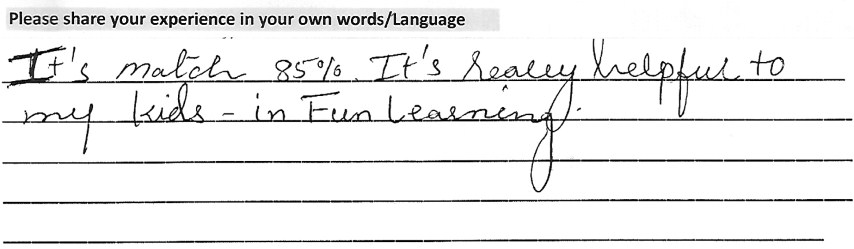 Please share your experience in your own words/Language
It's match 85%. It's really helpful to
my kids - in Fun Learning.